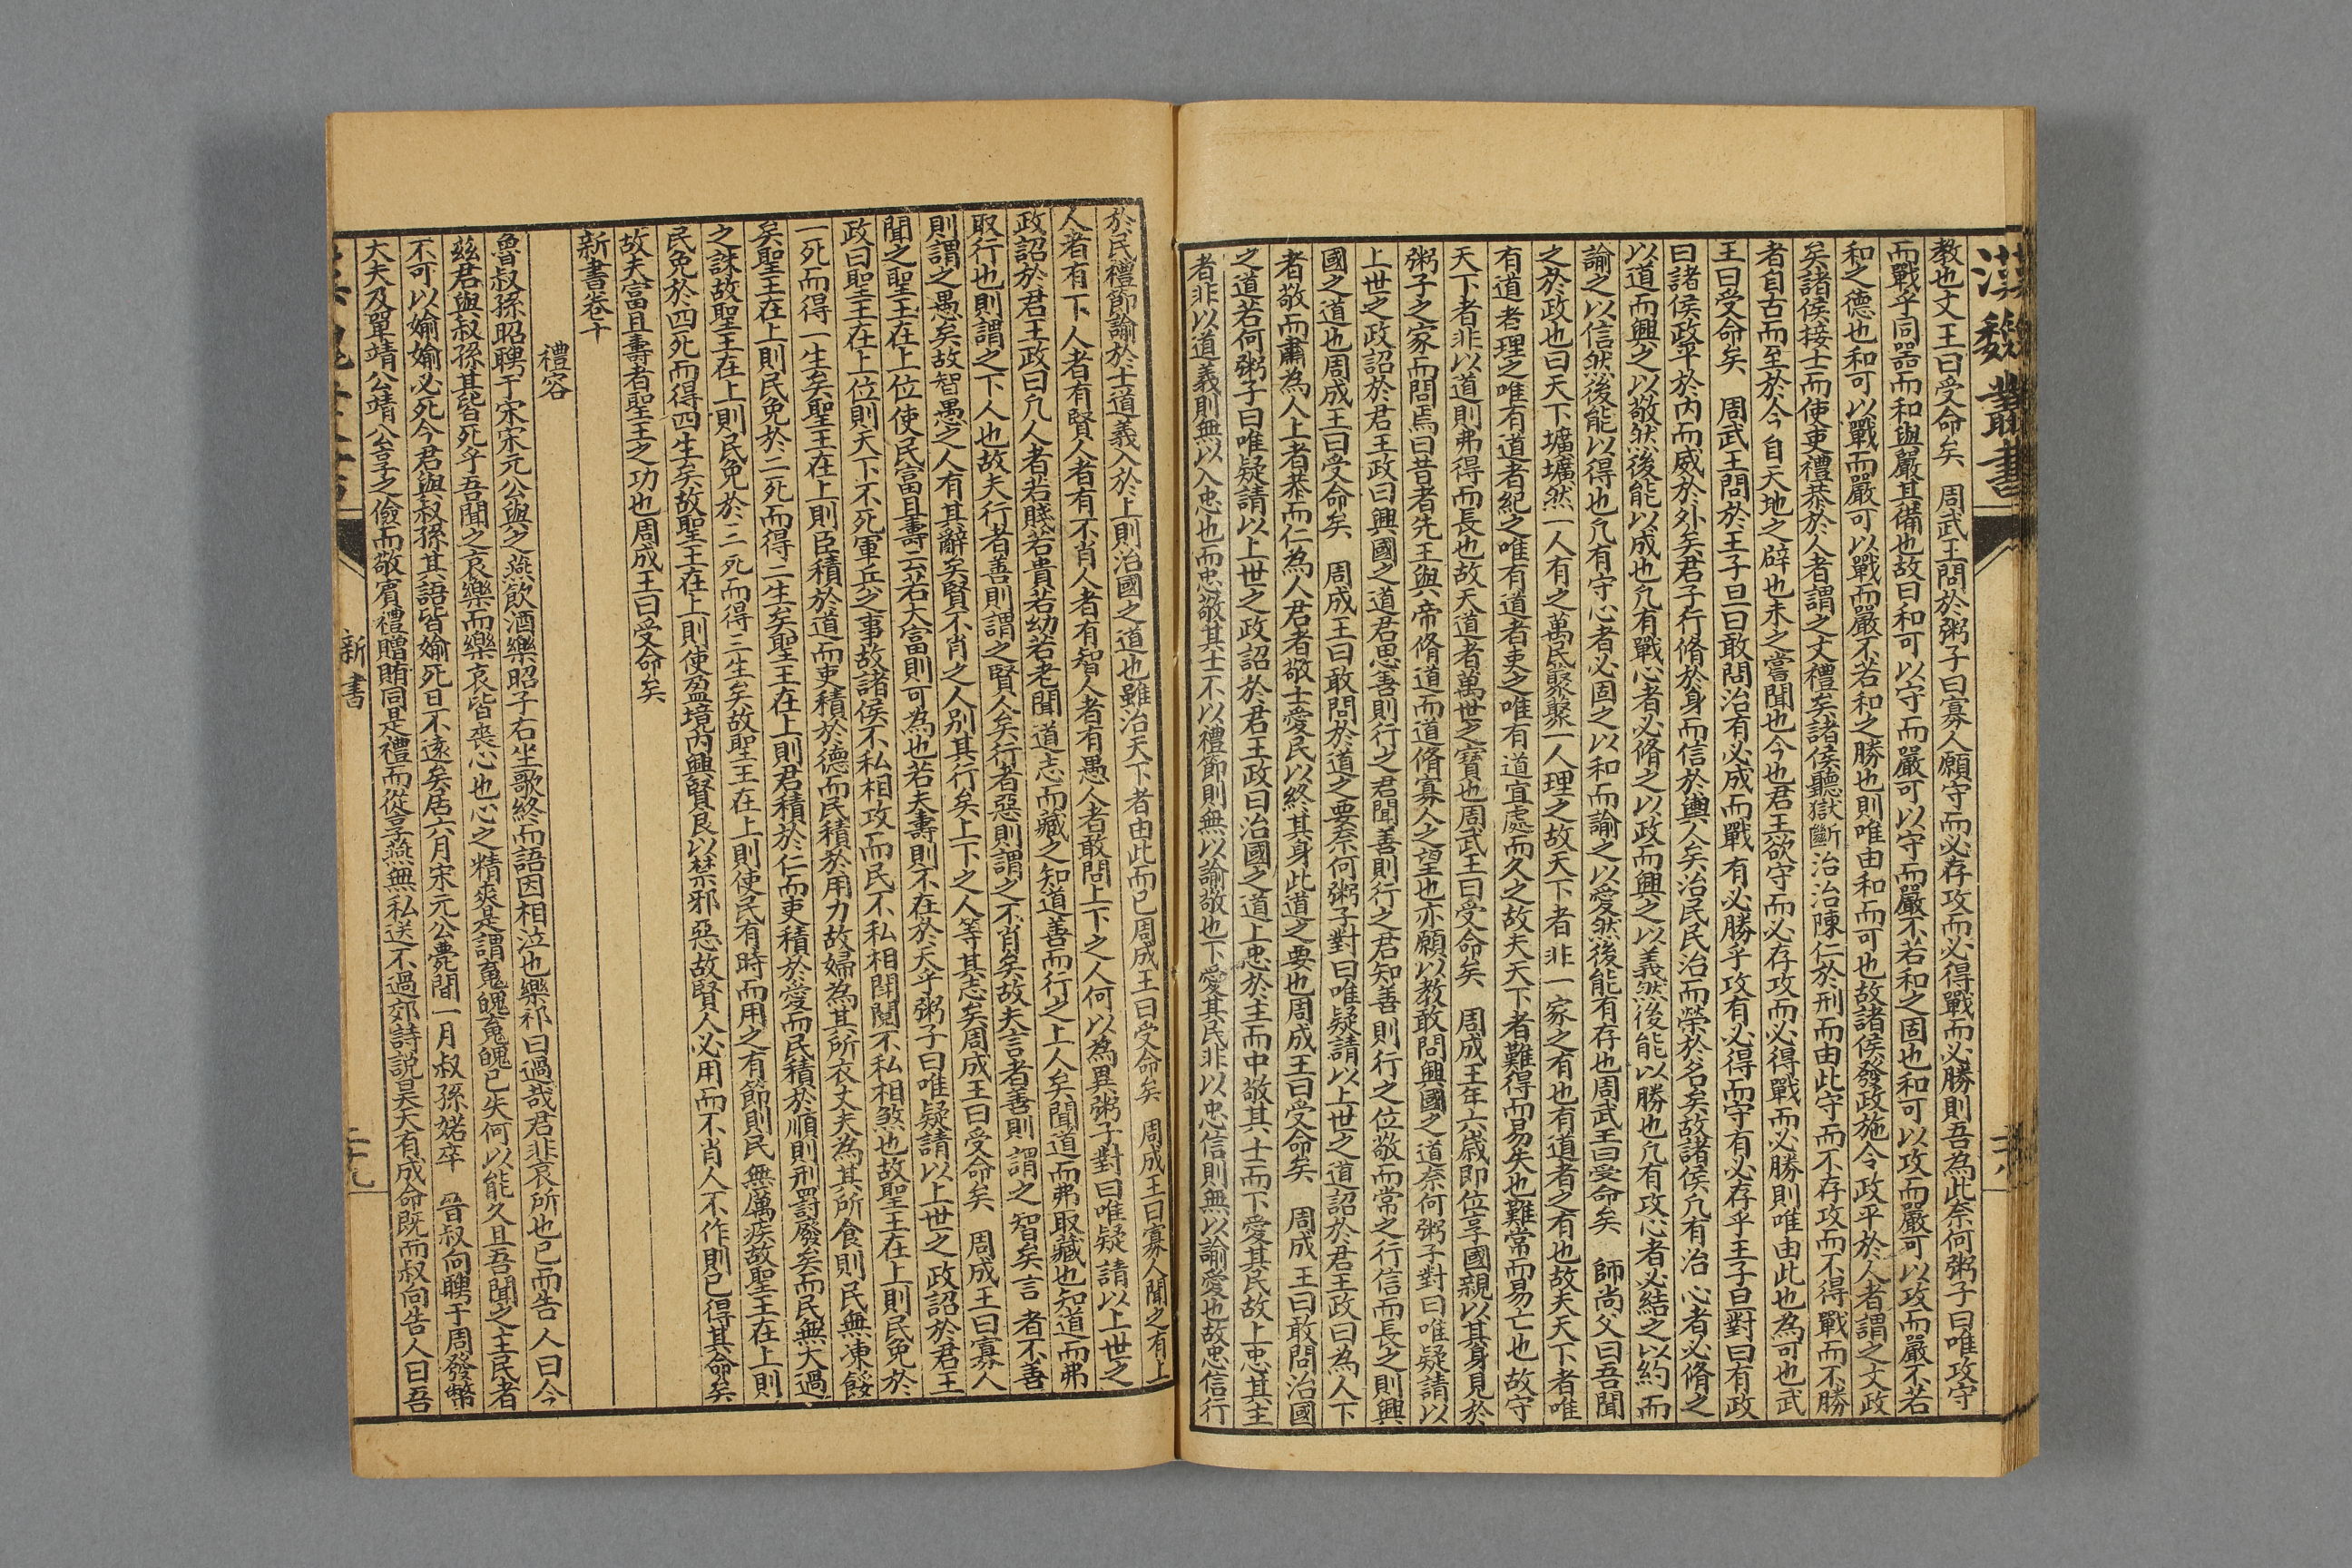 漢魏叢書
二十八
教也文王曰受命矣 周武王問於粥子曰寡人願守而必存攻而必得戰而必勝則吾為此奈何粥子曰唯攻守
而戰乎同噐而和與嚴其備也故曰和可以守而嚴可以守而嚴不若和之固也和可以攻而嚴可以攻而嚴不若
和之德也和可以戰而嚴可以戰而嚴不若和之勝也則唯由和而可也故諸侯發政施令政平於人者謂之文政
矣諸侯接士而使吏禮恭於人者謂之文禮矣諸侯聽獄斷治治陳仁於刑而由此守而不存攻而不得戰而不勝
者自古而至於今自天地之辟也未之嘗聞也今也君王欲守而必存攻而必得戰而必勝則唯由此也為可也武
王曰受命矣 周武王問於王子旦曰敢問治有必成而戰有必勝乎攻有必得而守有必存乎王子旦對曰有政
曰諸侯政平於內而威於外矣君子行脩於身而信於輿人矣治民民治而榮於名矣故諸侯凡有治心者必脩之
以道而興之以敬然後能以成也凡有戰心者必脩之以政而興之以義然後能以勝也凡有攻心者必結之以約而
諭之以信然後能以得也凡有守心者必固之以和而諭之以愛然後能有存也周武王曰受命矣 師尚父曰吾聞
之於政也曰天下壙壙然一人有之萬民藂藂一人理之故天下者非一家之有也有道者之有也故夫天下者唯
有道者理之唯有道者紀之唯有道者吏之唯有道宜處而久之故夫天下者難得而易失也難常而易亡也故守
天下者非以道則弗得而長也故夫道者萬世之寶也周武王曰受命矣 周成王年六歲即位享國親以其身見於
粥子之家而問焉曰昔者先王與帝脩道而道脩寡人之望也亦願以教敢問興國之道奈何粥子對曰唯疑請以
上世之政詔於君王政曰興國之道君思善則行之君聞善則行之君知善則行之位敬而常之行信而長之則興
國之道也周成王曰受命矣 周成王曰敢問於道之要奈何粥子對曰唯疑請以上世之道詔於君王政曰為人下
者敬而肅為人上者恭而仁為人君者敬士愛民以終其身此道之要也周成王曰受命矣 周成王曰敢問治國
之道若何粥子曰唯疑請以上世之政詔於君王政曰治國之道上忠於主而中敬其士而下愛其民故上忠其主
者非以道義則無以入忠也而忠敬其士不以禮節則無以諭敬也下愛其民非以忠信則無以諭愛也故忠信行
於民禮節諭於士道義入於上則治國之道也雖治天下者由此而已周成王曰受命矣 周成王曰寡人聞之有上
人者有下人者有賢人者有不肖人者有智人者有愚人者敢問上下之人何以為異粥子對曰唯疑請以上世之
政詔於君王政曰凡人者若賤若貴若幼若老聞道志而藏之知道善而行之上人矣聞道而弗取藏也知道而弗
取行也則謂之下人也故夫行者善則謂之賢人矣行者惡則謂之不肖矣故夫言者善則謂之智矣言者不善
則謂之愚矣故智愚之人有其辭矣賢不肖之人別其行矣上下之人等其志矣周成王曰受命矣 周成王曰寡人
聞之聖王在上位使民富且壽云若夫富則可為也若夫壽則不在於天乎粥子曰唯疑請以上世之政詔於君王
政曰聖王在上位則天下不死軍兵之事故諸侯不私相攻而民不私相鬪鬩不私相煞也故聖王在上則民免於
一死而得一生矣聖王在上則臣積於道而吏積於德而民積於用力故婦為其所衣丈夫為其所食則民無凍餒
矣聖王在上則民免於二死而得二生矣聖王在上則君積於仁而吏積於愛而民積於順則刑罰廢矣而民無夭過
之誅故聖王在上則民免於三死而得三生矣故聖王在上則使民有時而用之有節則民無厲疾故聖王在上則
民免於四死而得四生矣故聖王在上則使盈境內興賢良以禁邪惡故賢人必用而不肖人不作則已得其命矣
故夫富且壽者聖王之功也周成王曰受命矣
新書卷十
禮容
魯叔孫昭聘于宋宋元公與之燕飲酒樂昭子右坐歌終而語因相泣也樂祁曰過哉君非哀所也已而告人曰今
茲君與叔孫其皆死乎吾聞之哀樂而樂哀皆喪心也心之精爽是謂䰟魄䰟魄已失何以能久且吾聞之主民者
不可以媮媮必死今君與叔孫其語皆媮死日不遠矣居六月宋元公薨間一月叔孫婼卒 晉叔向聘于周發幣
大夫及單靖公靖公享之儉而敬賓禮贈賄同是禮而從享燕無私送不過郊詩說昊天有成命既而叔向告人曰吾
新書
二十九